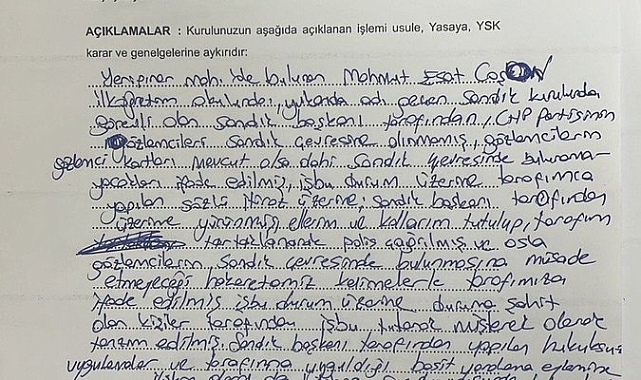 AÇIKLAMALAR : Kurulunuzun aşağıda açıklanan işlemi usule, Yasaya, YSK
karar ve genelgelerine aykırıdır:
Yenipınar mah.'de bulunan Mahmut Esat Coşan
ilköğretim okulunda, yukarıda adı geçen sandık kurulunda
görevli olan sandık başkanı tarafından, CHP Partisinin
gözlemcileri sandık çevresine alınmamış, gözlemcilerin
gözlemci kartları mevcut olsa dahi sandık çevresinde bulunama-
yacakları ifade edilmiş, işbu durum üzerine tarafımca
yapılan sözlü itiraz üzerine, sandık başkanı tarafından
üzerime yürünmüş ellerim ve kollarım tutulup, tarafım
tartaklanarak polis çağrılmış ve asla
gözlemcilerin sandık çevresinde bulunmasına müsade
etmeyeceği hakaretamiz kelimelerle tarafımıza
ifade edilmiş işbu durum üzerine duruma şahit
olan kişiler tarafından işbu tutanak müşterek olarak
tanzim edilmiş. Sandık başkanı tarafından yapılan hukuksuz
uygulamalar ve tarafıma uyguladığı basit yaralama eylemine